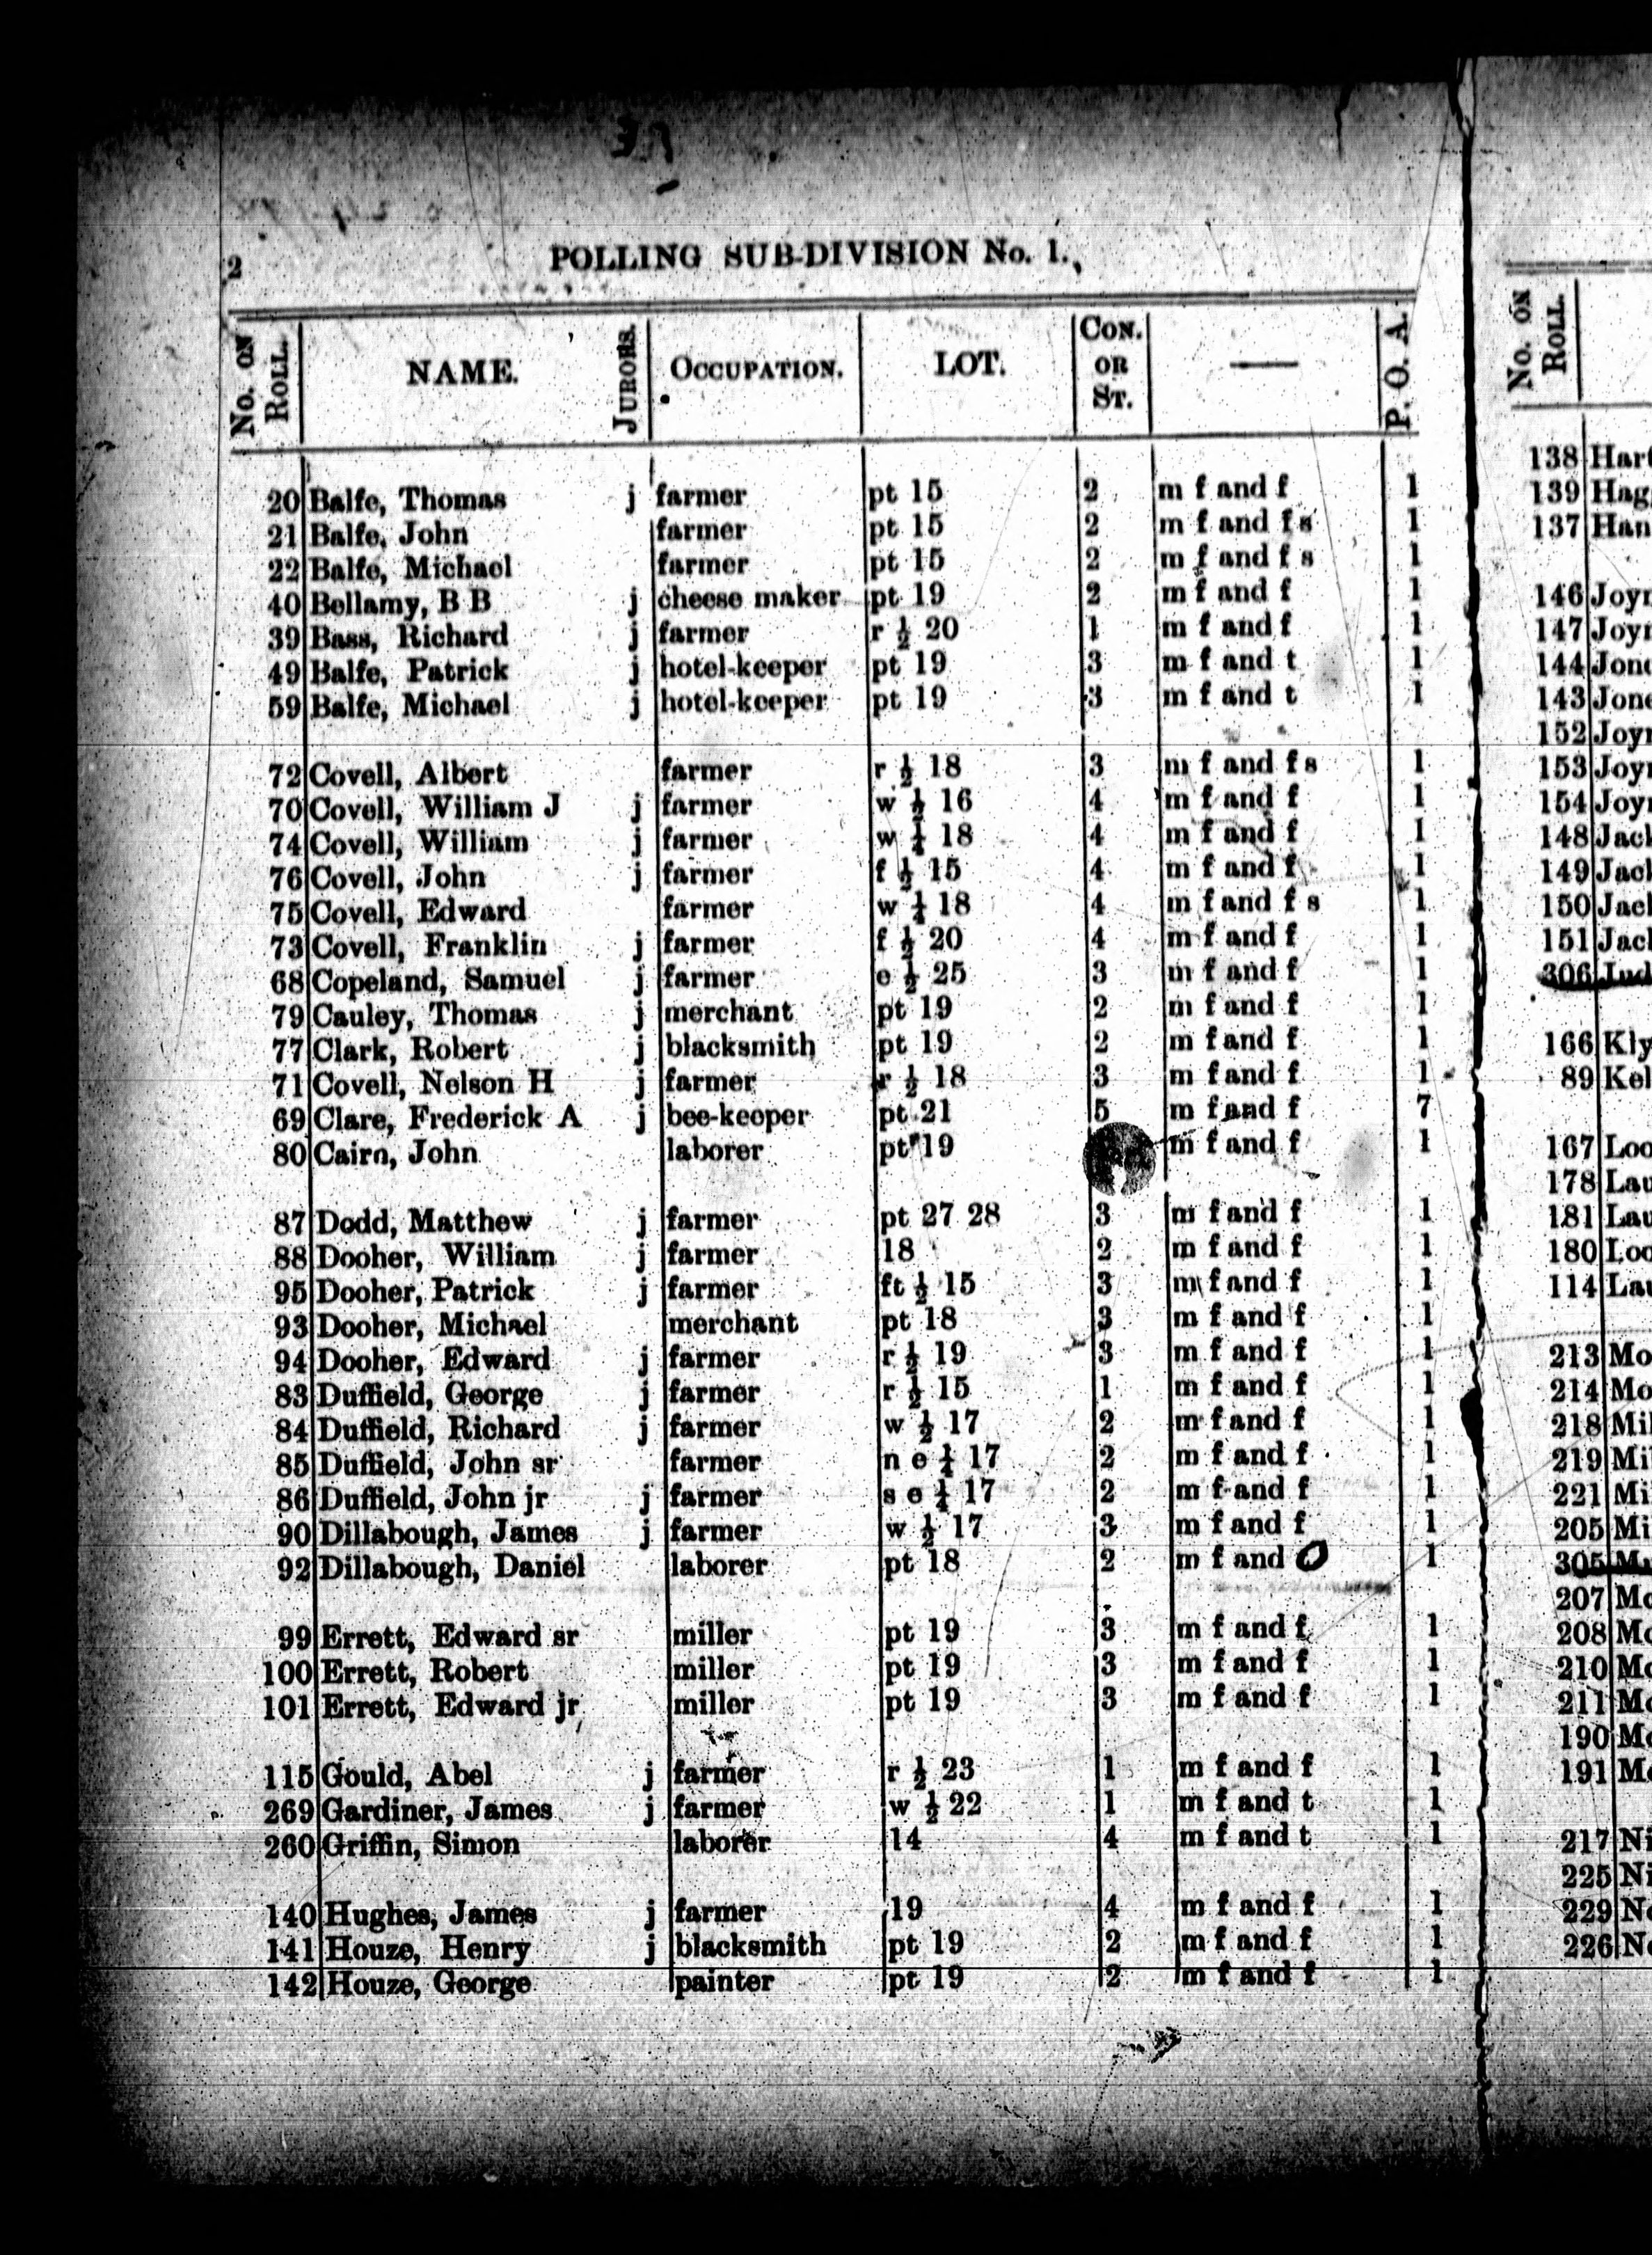 2
POLLING SUB-DIVISION No. 1.
No. ON ROLL. NAME. JURORS. OCCUPATION. LOT. CON. OR ST. — P. O. A.
20 Balfe, Thomas j farmer pt 15 2 m f and f 1
21 Balfe, John farmer pt 15 2 m f and f s 1
22 Balfe, Michael farmer pt 15 2 m f and f s 1
40 Bellamy, B B j cheese maker pt 19 2 m f and f 1
39 Bass, Richard j farmer r ½ 20 1 m f and f 1
49 Balfe, Patrick j hotel-keeper pt 19 3 m f and t 1
59 Balfe, Michael j hotel-keeper pt 19 3 m f and t 1
72 Covell, Albert farmer r ½ 18 3 m f and f s 1
70 Covell, William J j farmer w ½ 16 4 m f and f 1
74 Covell, William j farmer w ¼ 18 4 m f and f 1
76 Covell, John j farmer f ½ 15 4 m f and f 1
75 Covell, Edward farmer w ¼ 18 4 m f and f s 1
73 Covell, Franklin j farmer f ½ 20 4 m f and f 1
68 Copeland, Samuel j farmer e ½ 25 3 m f and f 1
79 Cauley, Thomas j merchant pt 19 2 m f and f 1
77 Clark, Robert j blacksmith pt 19 2 m f and f 1
71 Covell, Nelson H j farmer r ½ 18 3 m f and f 1
69 Clare, Frederick A j bee-keeper pt 21 5 m f and f 7
80 Cairn, John laborer pt 19 m f and f 1
87 Dodd, Matthew j farmer pt 27 28 3 m f and f 1
88 Dooher, William j farmer 18 2 m f and f 1
95 Dooher, Patrick j farmer ft ½ 15 3 m f and f 1
93 Dooher, Michael merchant pt 18 3 m f and f 1
94 Dooher, Edward j farmer r ½ 19 3 m f and f 1
83 Duffield, George j farmer r ½ 15 1 m f and f 1
84 Duffield, Richard j farmer w ½ 17 2 m f and f 1
85 Duffield, John sr farmer n e ¼ 17 2 m f and f 1
86 Duffield, John jr j farmer s e ¼ 17 2 m f and f 1
90 Dillabough, James j farmer w ½ 17 3 m f and f 1
92 Dillabough, Daniel laborer pt 18 2 m f and O 1
99 Errett, Edward sr miller pt 19 3 m f and f 1
100 Errett, Robert miller pt 19 3 m f and f 1
101 Errett, Edward jr miller pt 19 3 m f and f 1
115 Gould, Abel j farmer r ½ 23 1 m f and f 1
269 Gardiner, James j farmer w ½ 22 1 m f and t 1
260 Griffin, Simon laborer 14 4 m f and t 1
140 Hughes, James j farmer 19 4 m f and f 1
141 Houze, Henry j blacksmith pt 19 2 m f and f 1
142 Houze, George painter pt 19 2 m f and f 1
No. ON ROLL.
138
139
137
146
147
144
143
152
153
154
148
149
150
151
306
166
89
167
178
181
180
114
213
214
218
219
221
205
305
207
208
210
211
190
191
217
225
229
226